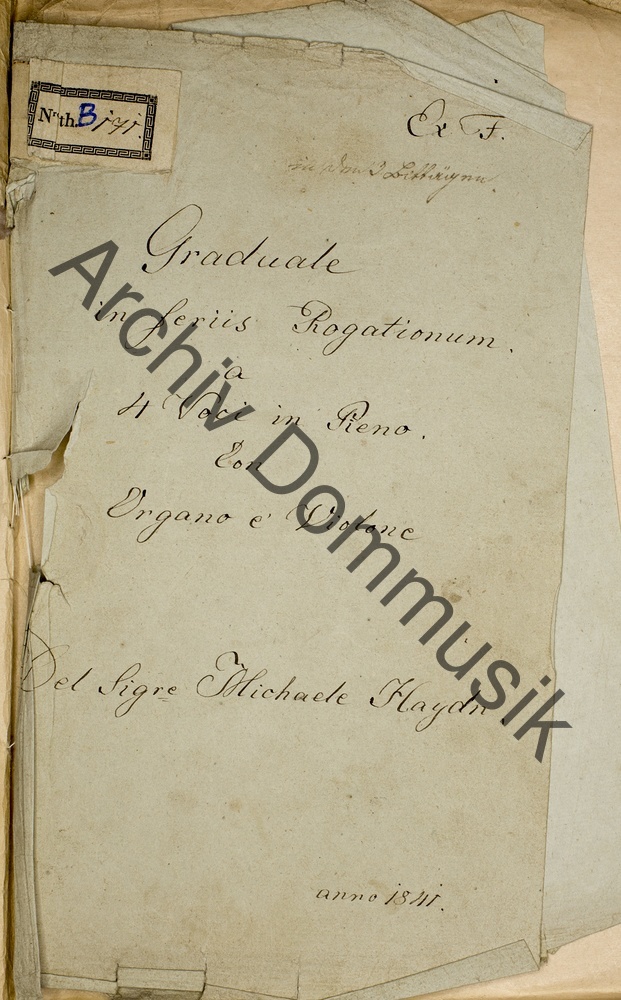 Nr. th. B 171.
Ex F.
in den 3 Bittägen.
Graduale
in feriis Rogationum.
a
4 Voci in Pieno.
Con
Organo e Violone
Del Sigre Michaele Haydn.
anno 1841.
Archiv Dommusik